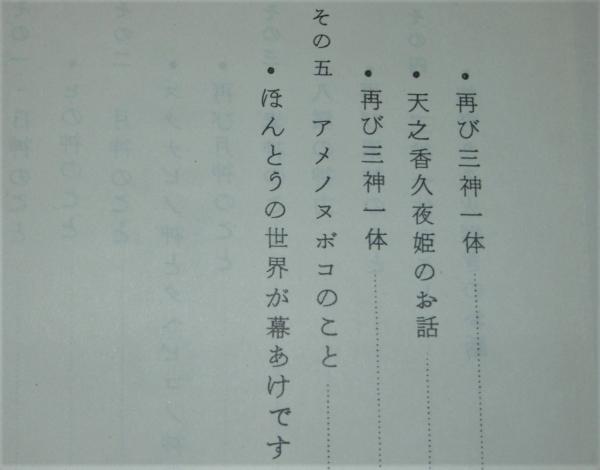 ・再び三神一体
・天之香久夜姫のお話
・再び三神一体
その五 アメノヌボコのこと
・ほんとうの世界が幕あけです